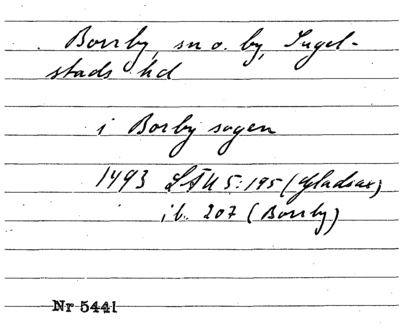 Borrby, sn o. by, Ingel-
stads hd
i Borby sogen
1493 LÅU 5:195 (Gladsax)
ib. 207 (Borrby)
Nr 5441